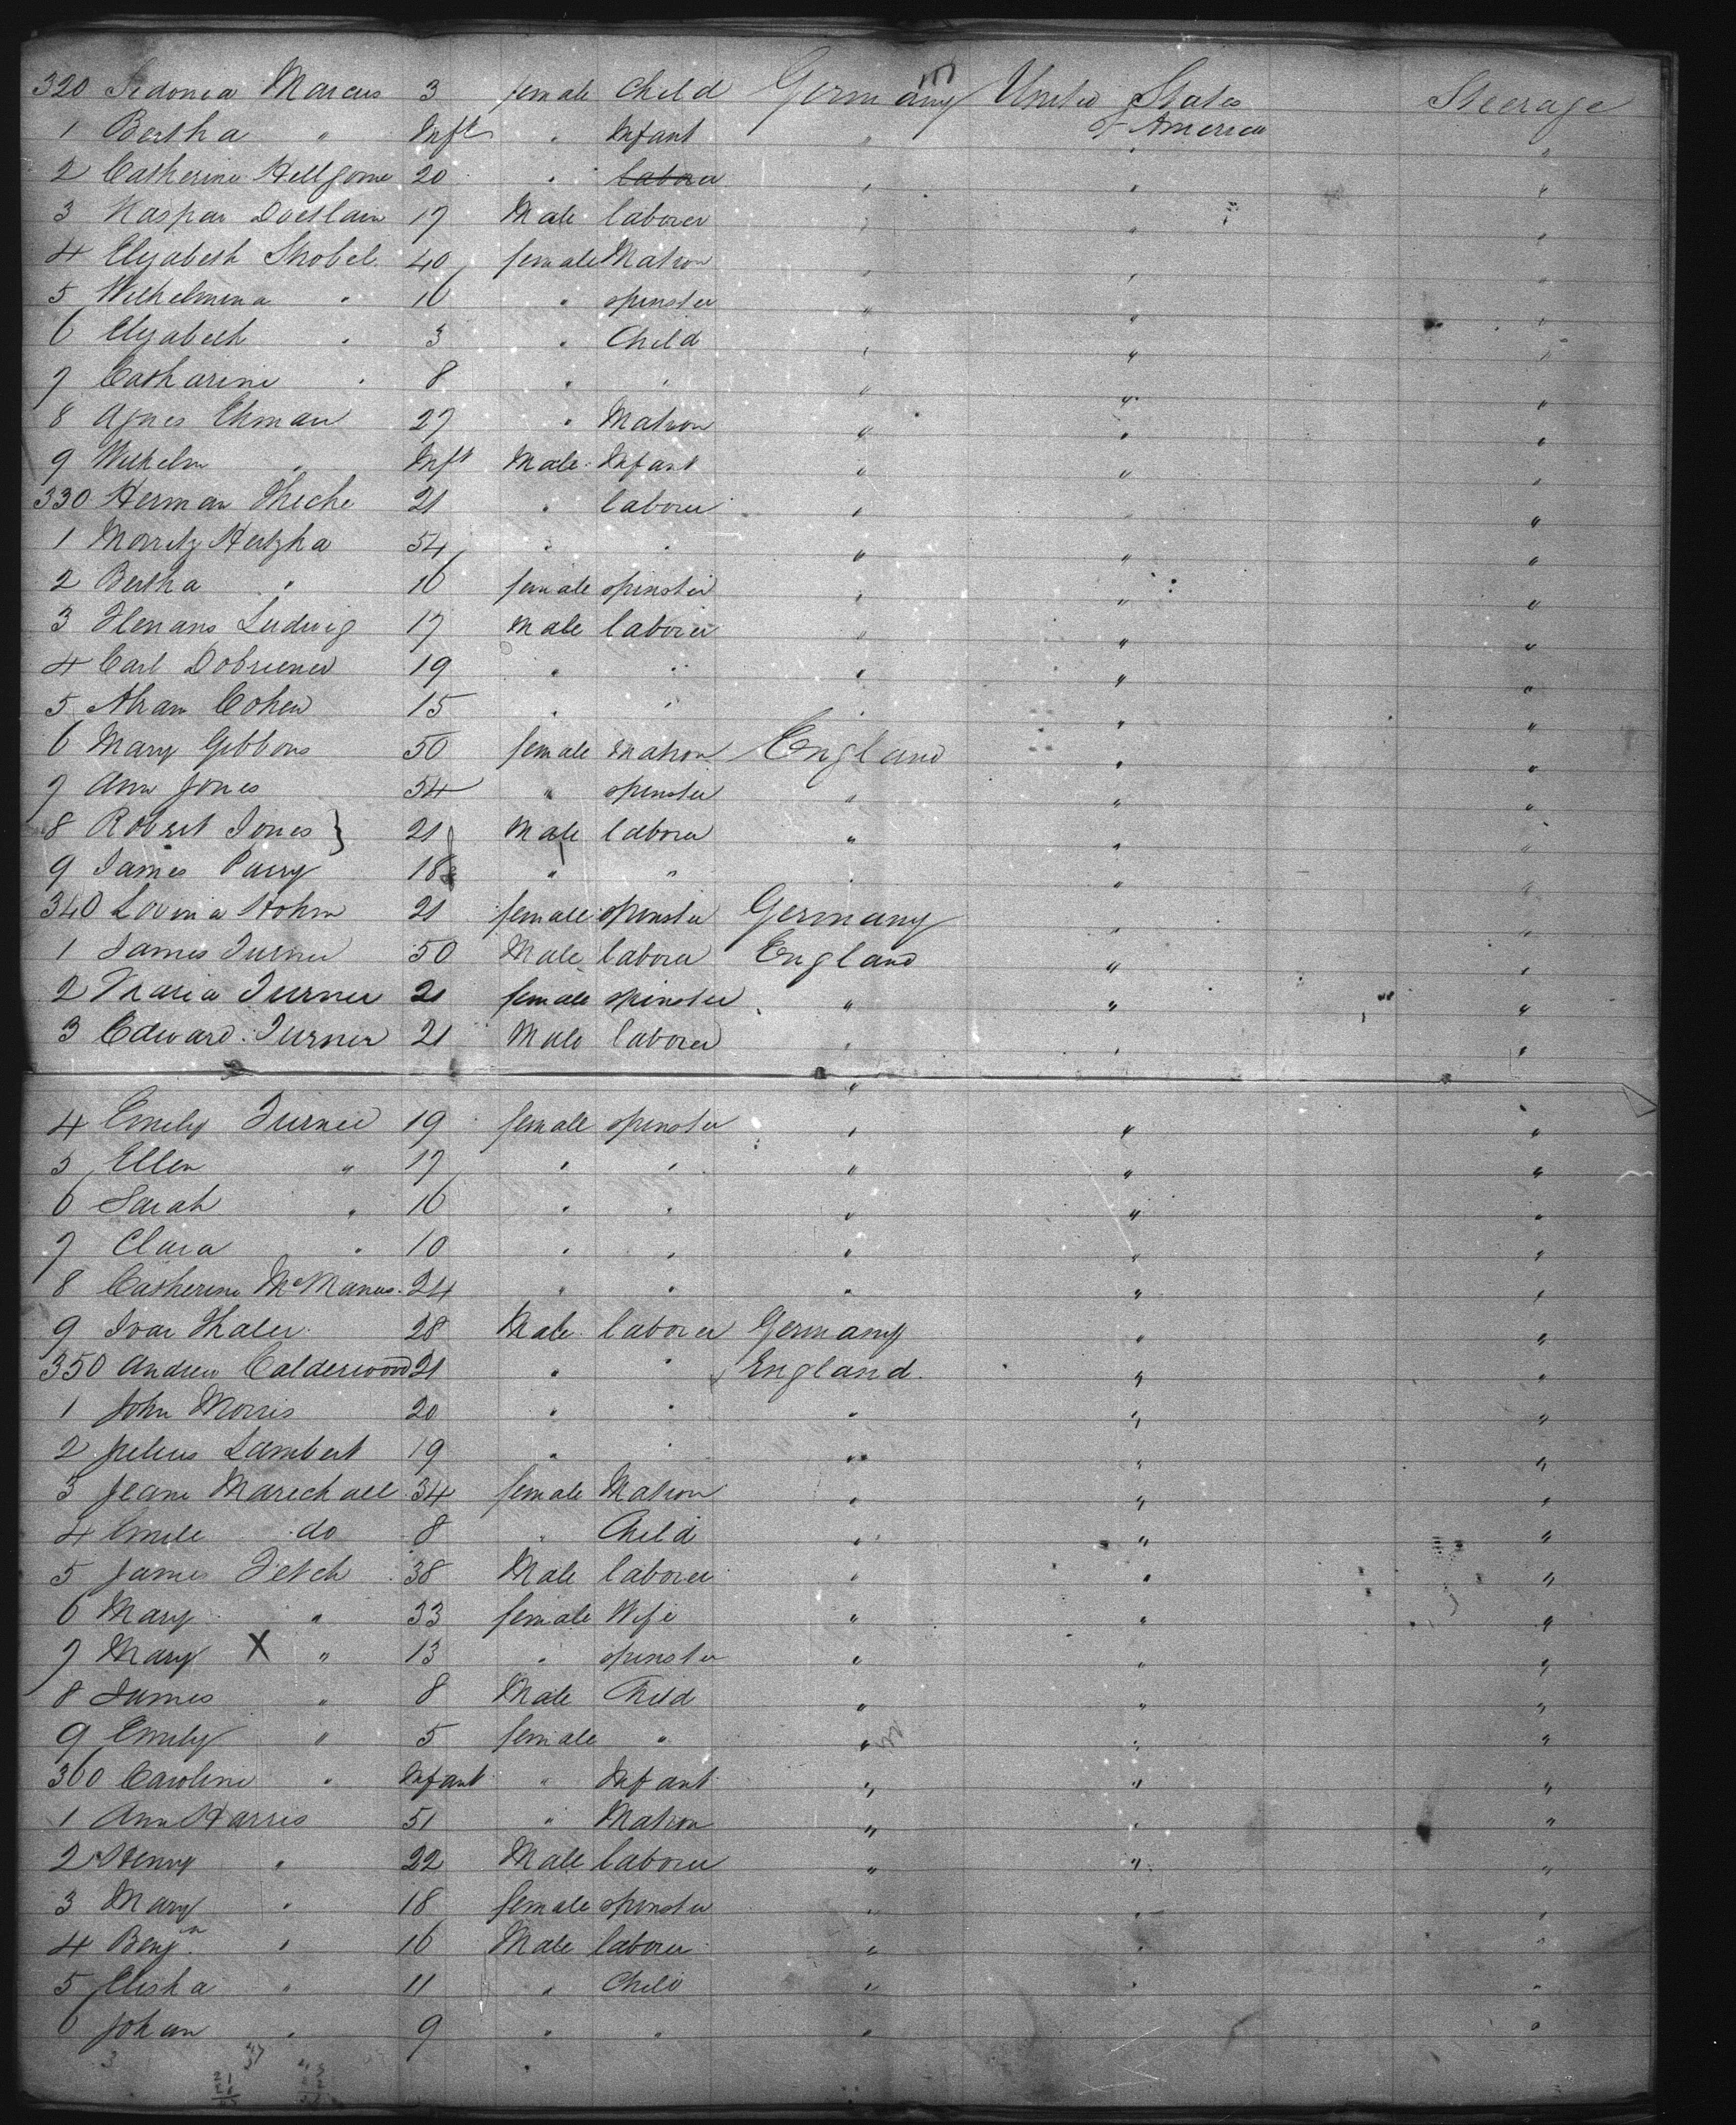 320 Sedonia Marcus 3 female Child Germany United States Steerage
of America
1 Bertha " Inft " Infant " " "
2 Catherine Hellgone 20 " laborer " " "
3 Kaspar 17 Male laborer " " "
4 Elizabeth Strobel 40 female Matron " " "
5 Wilhelmina " 16 " spinster " " "
6 Elizabeth " 3 " Child " " "
7 Catharine " 8 " " " " "
8 Agnes Ehman 27 " Matron " " "
9 Wilhelm " Inft Male Infant " " "
330 Herman Thiche 21 " laborer " " "
1 Morritz Hertzka 54 " " " " "
2 Bertha " 16 female spinster " " "
3 Ludwig 17 Male laborer " " "
4 Carl Dobriener 19 " " " " "
5 Abram Cohen 15 " " " " "
6 Mary Gibbons 50 female Matron England " "
7 Ann Jones 54 " spinster " " "
8 Robert Jones } 21 Male laborer " " "
9 James Parry 18 " " " " "
340 Lovina Hohm 21 female spinster Germany " "
1 James Turner 50 Male laborer England " "
2 Maria Turner 21 female spinster " " "
3 Edward Turner 21 Male laborer " " "
4 Emily Turner 19 female spinster " " "
5 Ellen " 17 " " " " "
6 Sarah " 16 " " " " "
7 Clara " 10 " " " " "
8 Catherine McManus 24 " " " " "
9 Ivar Thaler 28 Male laborer Germany " "
350 Andrew Calderwood 21 " " England. " "
1 John Morris 20 " " " " "
2 Julius Lambert 19 " " " " "
3 Jeane Marechall 34 female Matron " " "
4 Emile do 8 " Child " " "
5 James Fetch 38 Male laborer " " "
6 Mary " 33 female Wife " " "
7 Mary X " 13 " spinster " " "
8 James " 8 Male Child " " "
9 Emily " 5 female " " " "
360 Caroline " Infant " Infant " " "
1 Ann Harris 51 " Matron " " "
2 Henry " 22 Male laborer " " "
3 Mary " 18 female spinster " " "
4 Benjn " 16 Male laborer " " "
5 Elisha " 11 " Child " " "
6 Johan " 9 " " " " "